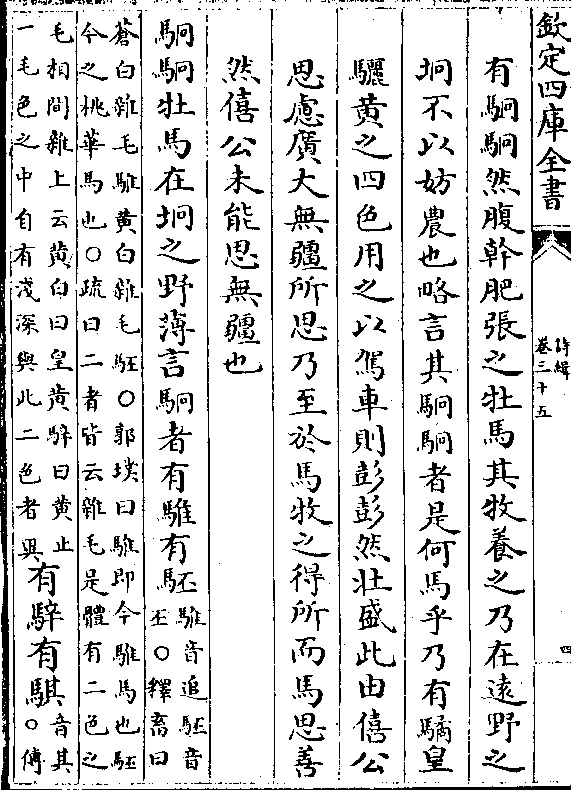 欽定四庫全書
詩緝
卷三十五
四
有駉駉然腹幹肥張之牡馬其牧養之乃在遠野之
坰不以妨農也略言其駉駉者是何馬乎乃有驈皇
驪黄之四色用之以駕車則彭彭然壯盛此由僖公
思慮廣大無疆所思乃至於馬牧之得所而馬思善
然僖公未能思無疆也
駉駉牡馬在坰之野薄言駉者有騅有駓
騅音追駓音
丕○釋畜曰
蒼白雜毛騅黄白雜毛駓○郭璞曰騅即今騅馬也駓
今之桃華馬也○疏曰二者皆云雜毛是體有二色之
毛相間雜上云黄白曰皇黄騂曰黄止
一毛色之中自有淺深與此二色者異
有騂有騏
音其
○傳